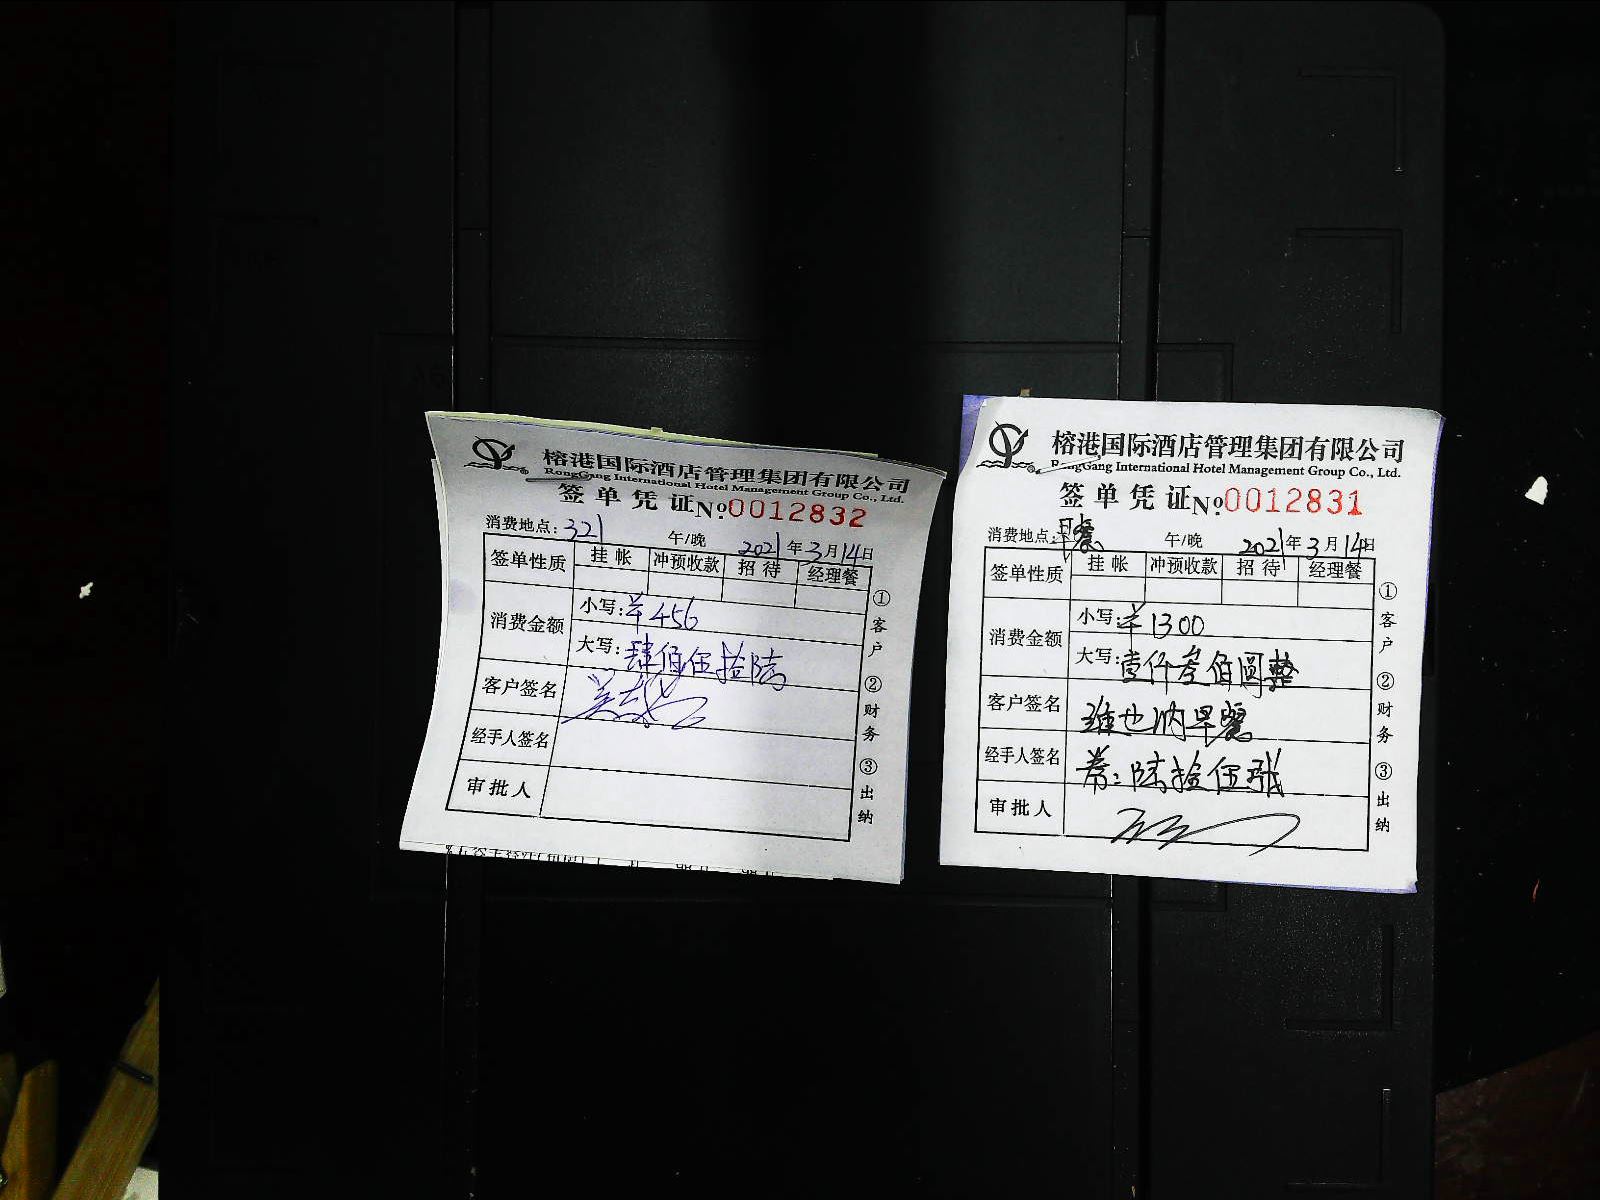 榕港国际酒店管理集团有限公司
RongGang International Hotel Management Group Co., Ltd.
签单凭证 № 0012832
消费地点: 321 午/晚 2021年3月14日
签单性质 挂帐 冲预收款 招待 经理餐
消费金额 小写: ¥456
大写: 肆佰伍拾陆
客户签名
经手人签名
审批人
① 客户 ② 财务 ③ 出纳
榕港国际酒店管理集团有限公司
RongGang International Hotel Management Group Co., Ltd.
签单凭证 № 0012831
消费地点: 早餐 午/晚 2021年3月14日
签单性质 挂帐 冲预收款 招待 经理餐
消费金额 小写: ¥1300
大写: 壹仟叁佰圆整
客户签名 维也纳早餐
经手人签名 券: 陆拾伍张
审批人
① 客户 ② 财务 ③ 出纳